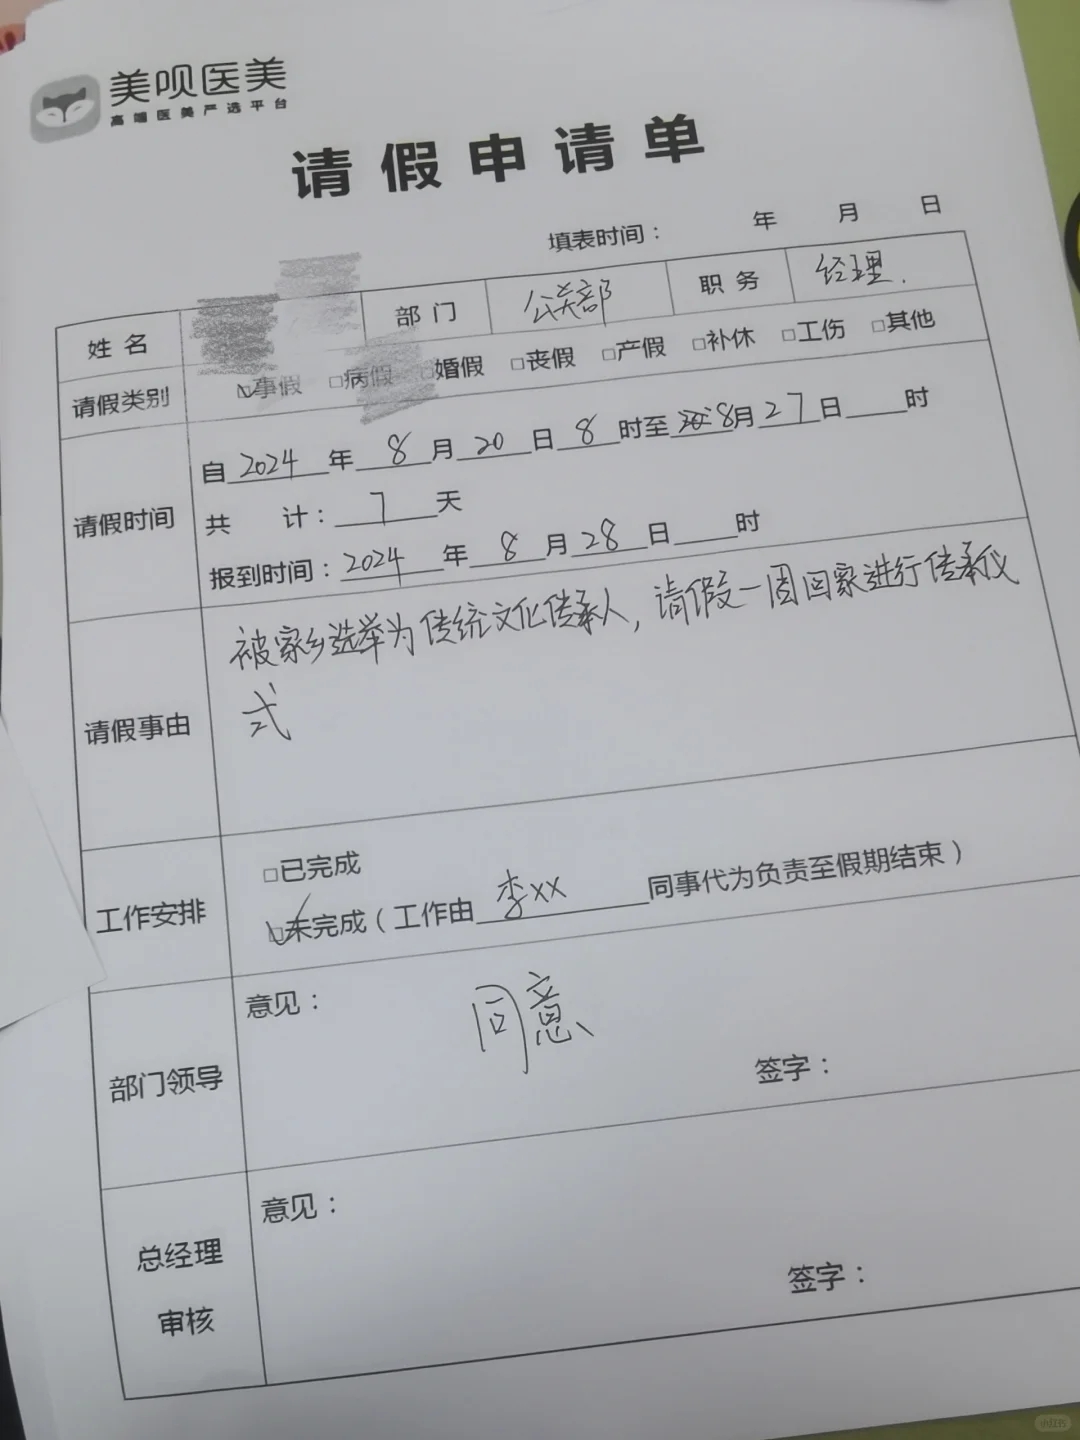 美呗医美
高端医美严选平台
请假申请单
填表时间： 年 月 日
姓名 部门 公关部 职务 经理.
请假类别 ☑事假 □病假 □婚假 □丧假 □产假 □补休 □工伤 □其他
请假时间
自2024年8月20日8时至8月27日____时
共 计：7天
报到时间：2024年8月28日____时
请假事由
被家乡选举为传统文化传承人，请假一周回家进行传承仪
式
工作安排
□已完成
☑未完成（工作由李xx同事代为负责至假期结束）
部门领导
意见：
同意
签字：
总经理
审核
意见：
签字：
小红书